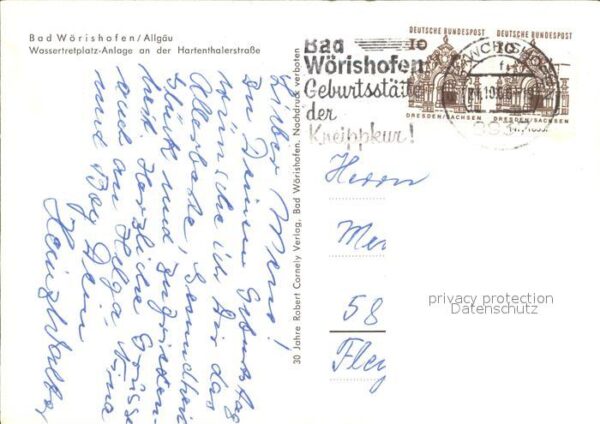 Bad Wörishofen/Allgäu
Wassertretplatz-Anlage an der Hartenthalerstraße
Lieber Mene!
Zu Deinem Geburtstag
wünsche ich Dir das
Allerbeste, Gesundheit
Glück und Zufrieden-
heit. Herzliche Grüsse
auch an Helga, Nina
und Bog Dein
Heinz Walber
30 Jahre Robert Cornely Verlag, Bad Wörishofen. Nachdruck verboten
Bad
Wörishofen
Geburtsstätte
der
Kneippkur!
DEUTSCHE BUNDESPOST
10
DRESDEN/SACHSEN
DEUTSCHE BUNDESPOST
10
DRESDEN/SACHSEN
Herrn
Me
58
privacy protection
Datenschutz